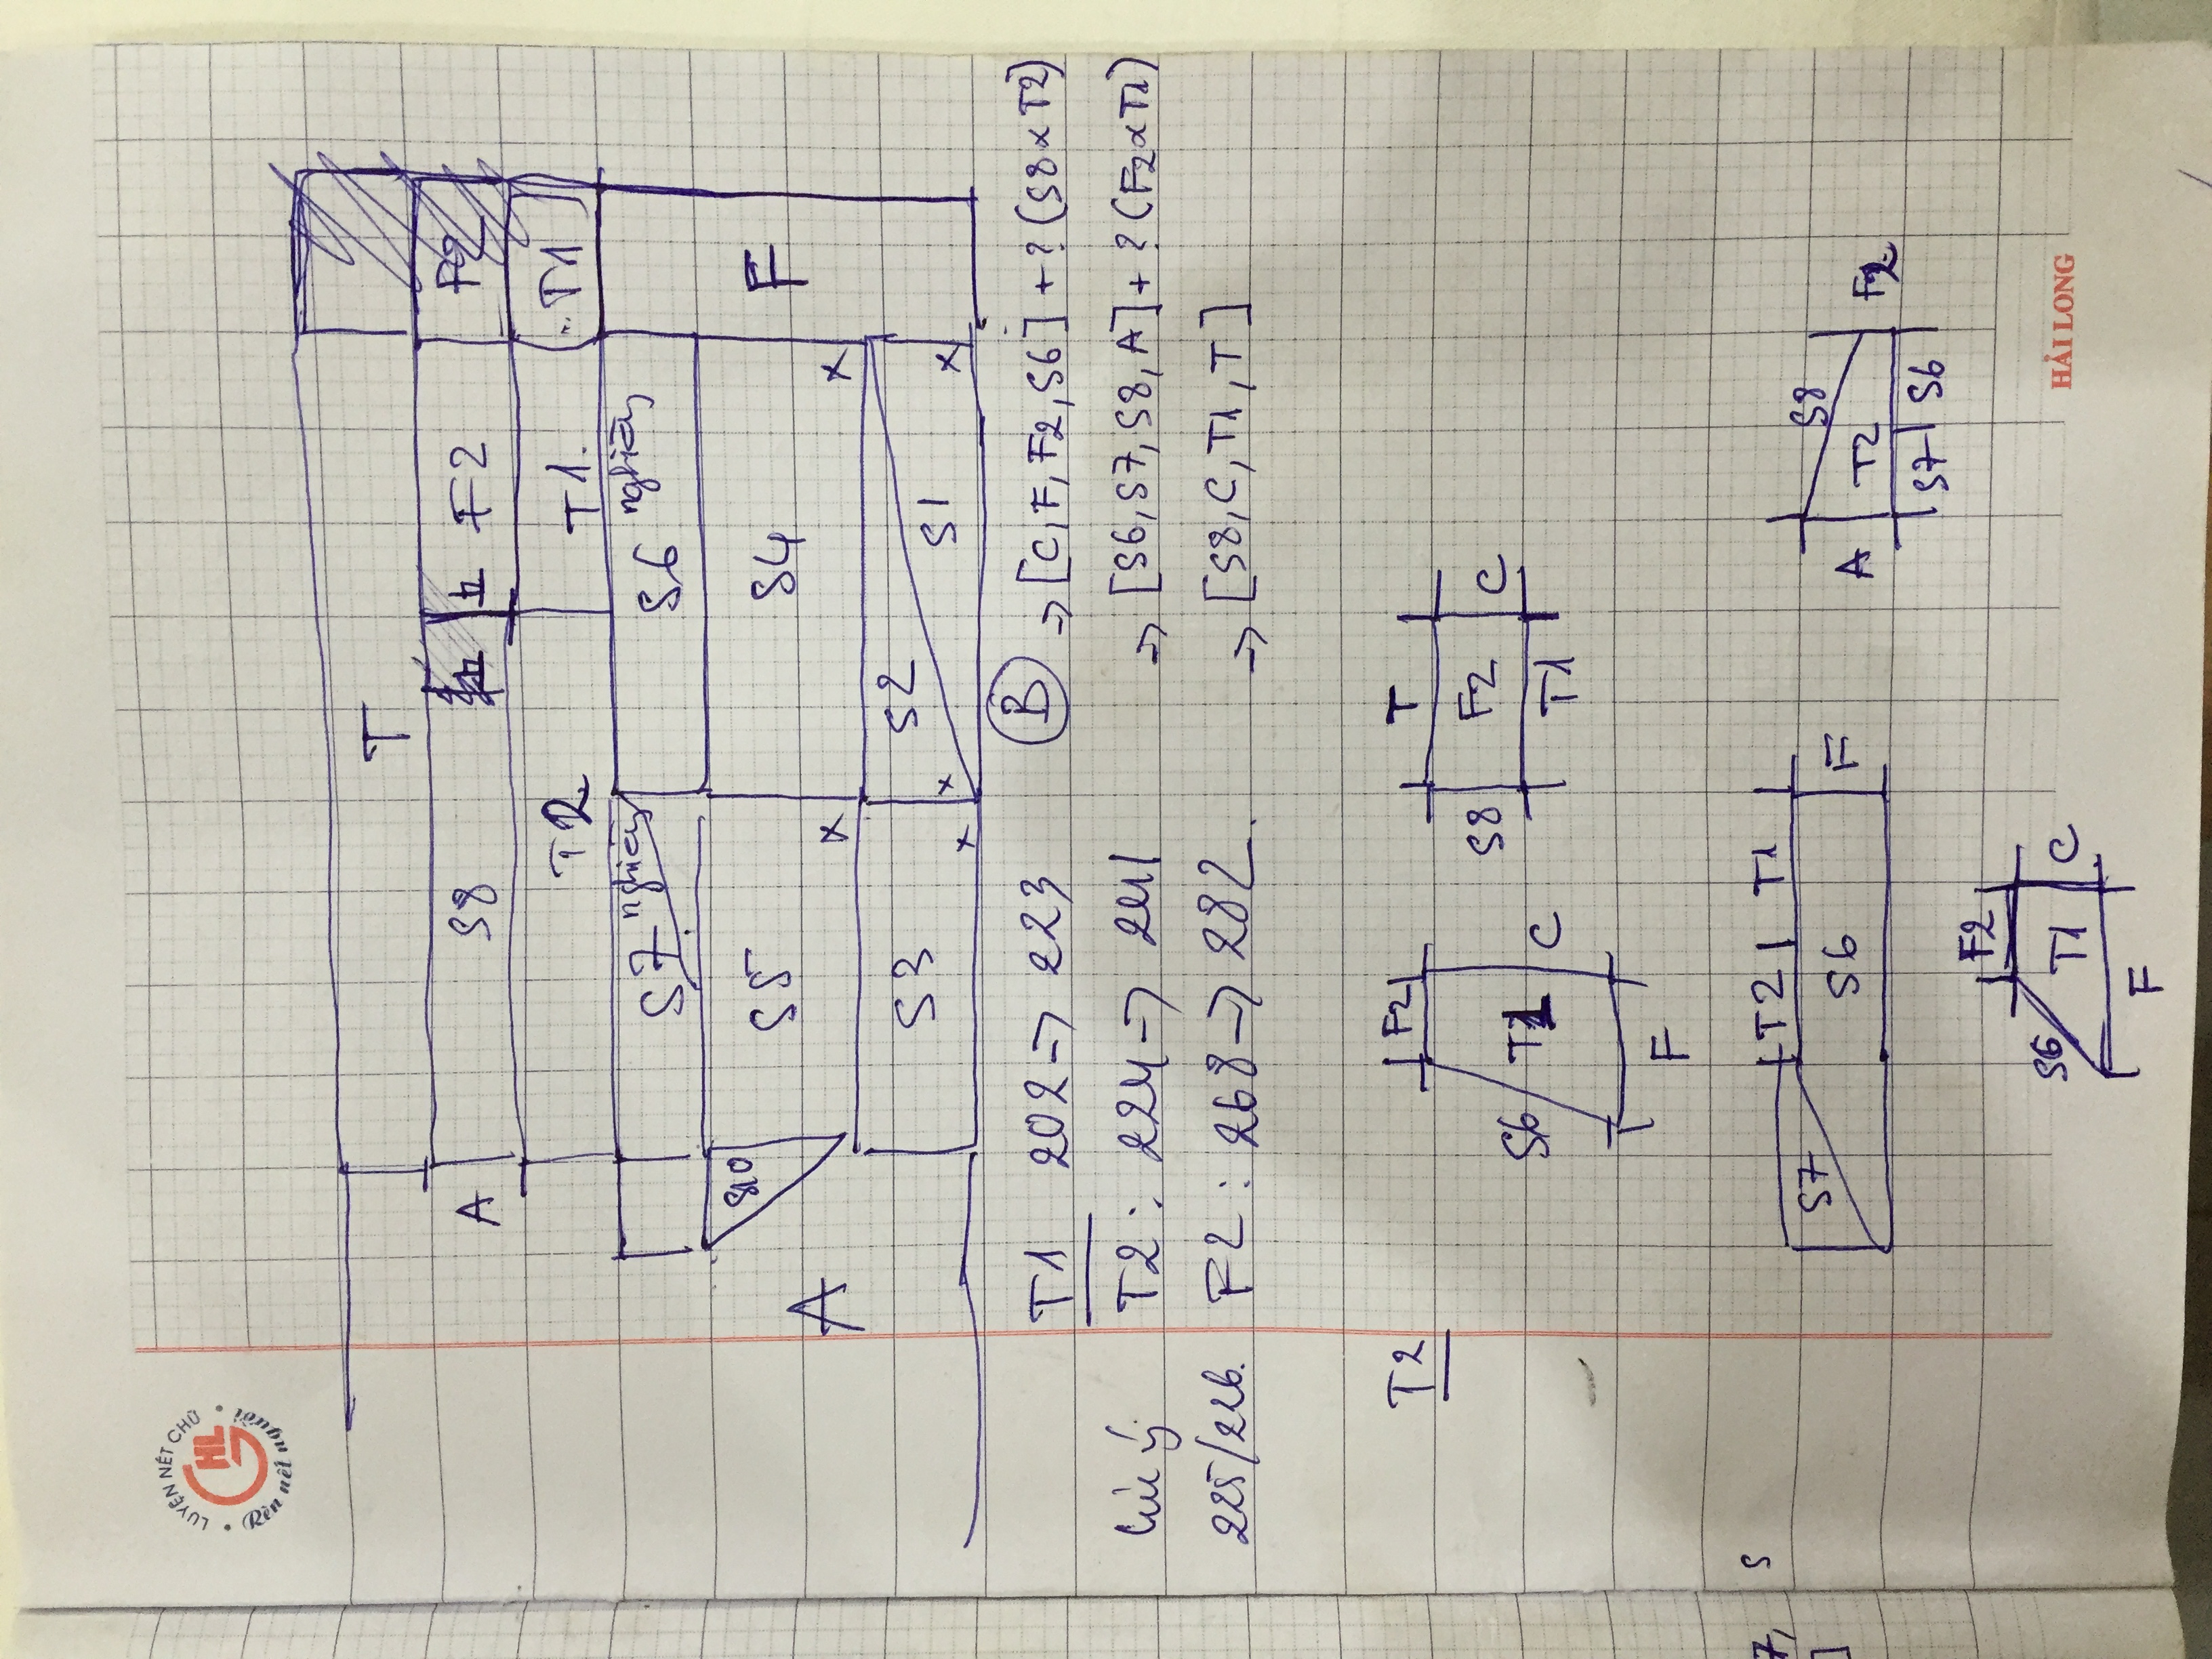 LUYỆN NÉT CHỮ
HL
Rèn nết người
T
A S8 F2 F2
T2 T1. T1
S7 nghiêng S6 nghiêng
S10 S5 S4 F
A x x
S3 S2 S1
x x x
T1 202 → 223 B → [C, F, F2, S6] + ? (S8 x T2)
Lưu ý T2 : 224 → 241 → [S6, S7, S8, A] + ? (F2 x T1)
225/226. F2 : 268 → 282. → [S8, C, T1, T]
T2
F2
S6 T1 C
F
T
S8 F2 C
T1
7, S
]
T2 T1
S7 S6 F
S8
A T2 F2
S7 S6
F2
S6 T1 C
F
HẢI LONG